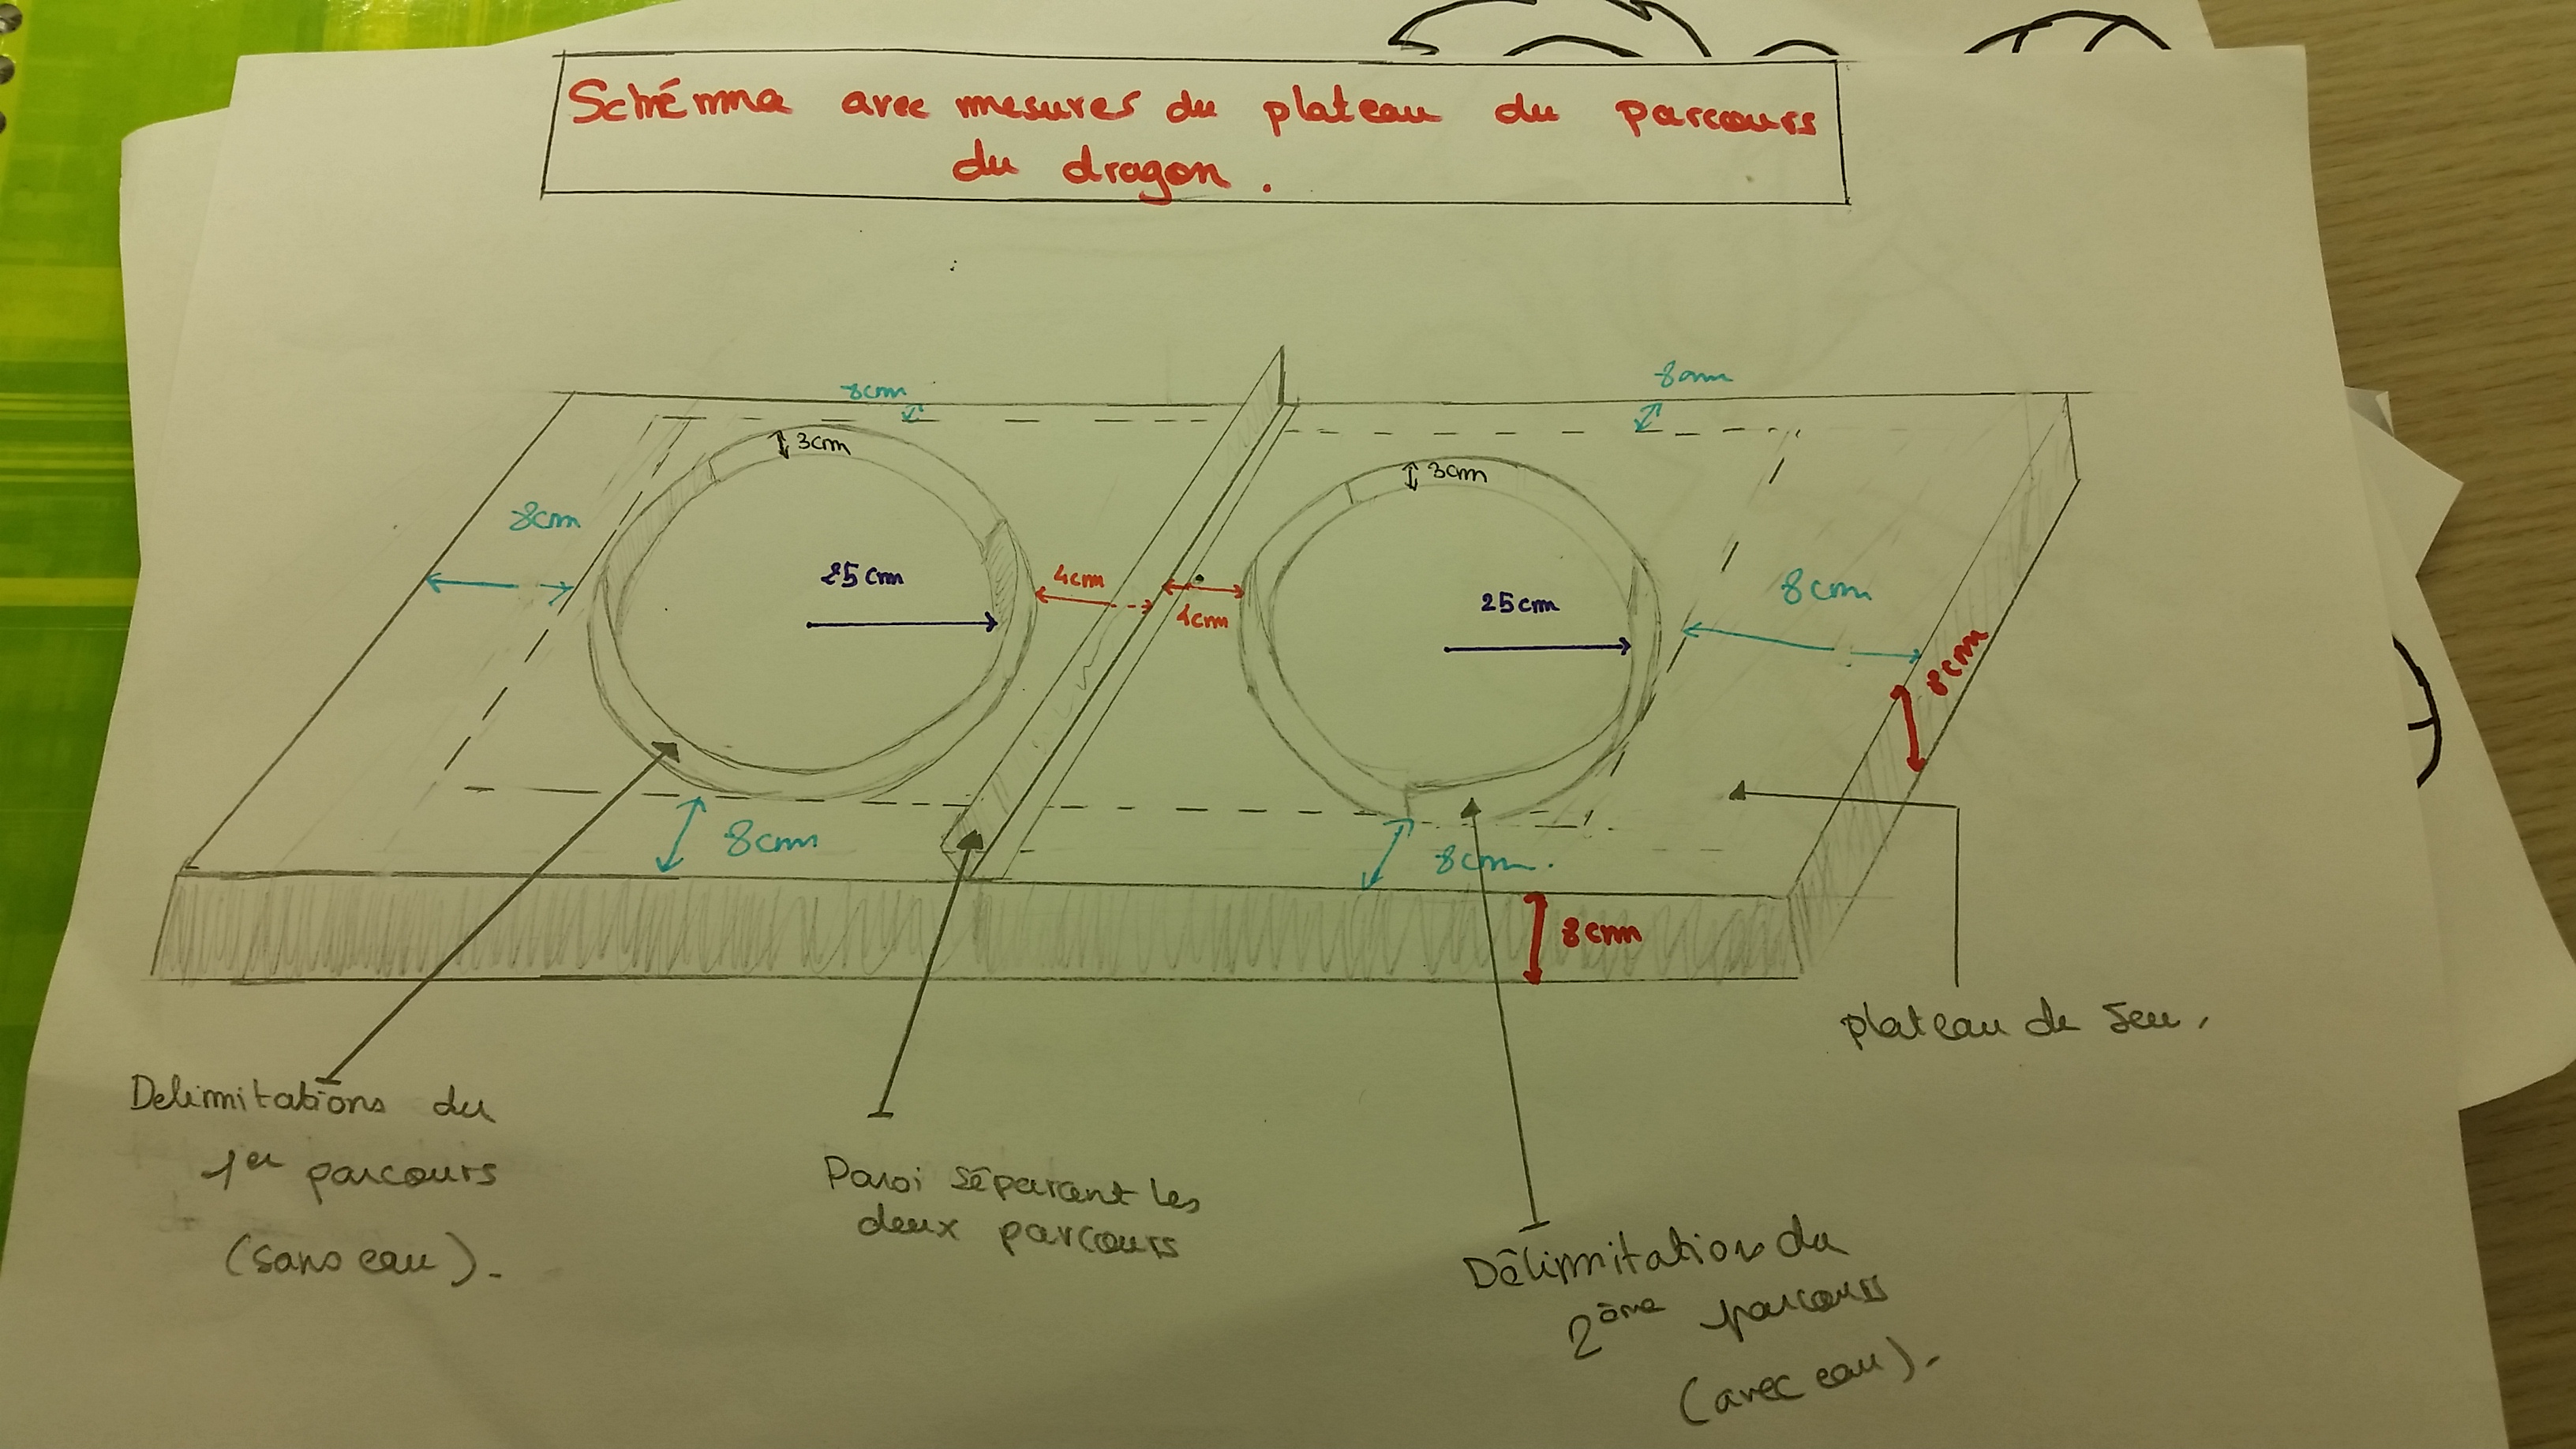 Schémma avec mesures du plateau du parcours
du dragon.
8cm
8cm
3cm
3cm
8cm
25cm
4cm
4cm
25cm
8cm
8cm
8cm
8cm.
8cm
plateau de Jeu.
Delimitations du
1er parcours
(sans eau).
Paroi séparant les
deux parcours
Délimitations du
2ème parcours
(avec eau).